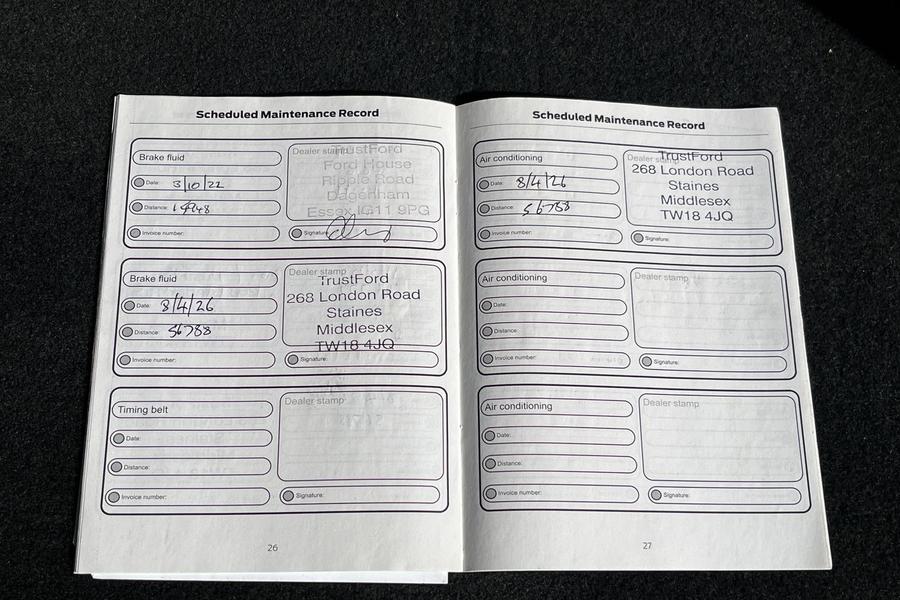 Scheduled Maintenance Record
Brake fluid
Dealer stamp
TrustFord
Ford House
Ripple Road
Dagenham
Essex IG11 9PG
Date: 3/10/22
Distance: 19948
Invoice number:
Signature:
Brake fluid
Dealer stamp
TrustFord
268 London Road
Staines
Middlesex
TW18 4JQ
Date: 8/4/26
Distance: 56788
Invoice number:
Signature:
Timing belt
Dealer stamp
Date:
Distance:
Invoice number:
Signature:
26
Scheduled Maintenance Record
Air conditioning
Dealer stamp
TrustFord
268 London Road
Staines
Middlesex
TW18 4JQ
Date: 8/4/26
Distance: 56788
Invoice number:
Signature:
Air conditioning
Dealer stamp
Date:
Distance:
Invoice number:
Signature:
Air conditioning
Dealer stamp
Date:
Distance:
Invoice number:
Signature:
27